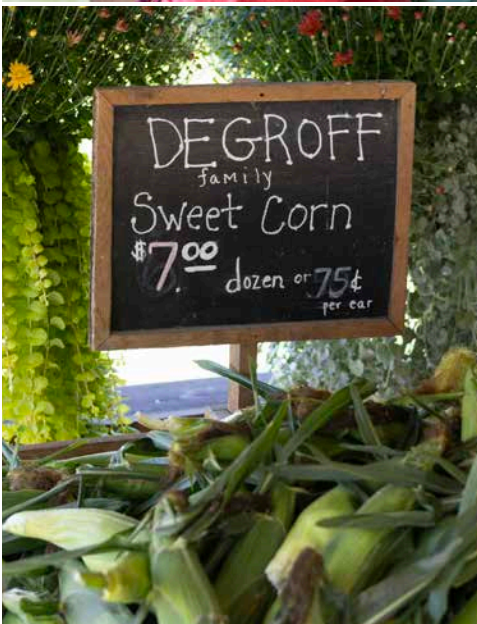 DEGROFF
family
Sweet Corn
$7.00 dozen or 75¢
per ear